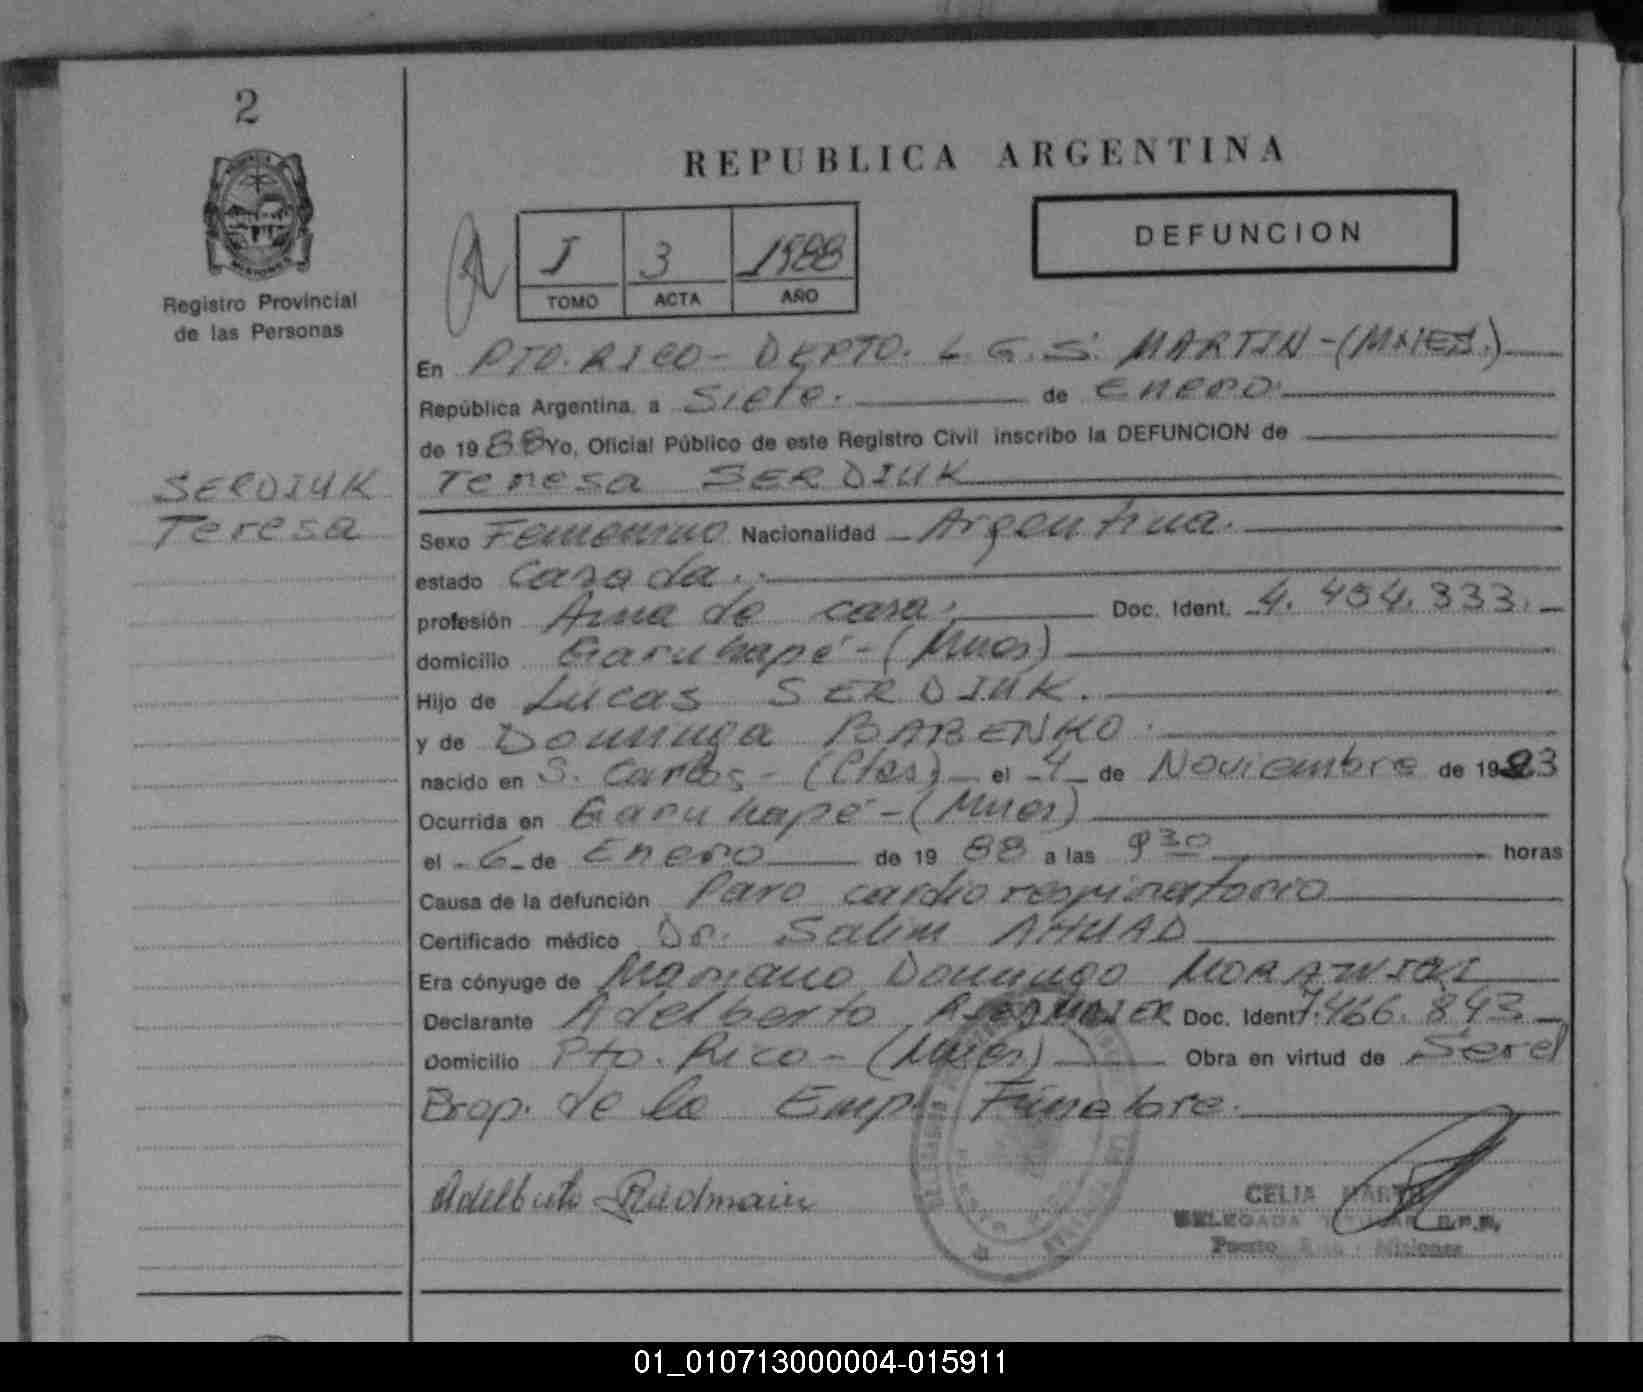 2
REPUBLICA ARGENTINA
DEFUNCION
I 3 1988
TOMO ACTA AÑO
Registro Provincial
de las Personas
En PTO. RICO - DEPTO. L. G. S. MARTIN - (MNES.)
República Argentina, a Siete. de Enero.
de 1988 Yo, Oficial Público de este Registro Civil inscribo la DEFUNCION de
Teresa SERDIUK
SERDIUK
Teresa
Sexo Femenino Nacionalidad Argentina.
estado Casada.
profesión Ama de casa. Doc. Ident. 4.454.333.
domicilio Garuhapé - (Mnes)
Hijo de Lucas SERDIUK.
y de Dominga BABENKO.
nacido en S. Carlos - (Ctes) el 4 de Noviembre de 1923
Ocurrida en Garuhapé - (Mnes)
el 6 de Enero de 1988 a las 9 30 horas
Causa de la defunción Paro cardio respiratorio
Certificado médico Dr. Salim AHUAD
Era cónyuge de Mariano Domingo MORAWICKI
Declarante Adelberto Doc. Ident 7.466.843
Domicilio Pto. Rico - (Mnes) Obra en virtud de Ser el
Prop. de la Emp. Fúnebre.
Adelberto
CELIA
DELEGADA TITULAR R.P.P.
Puerto Rico - Misiones
01_010713000004-015911